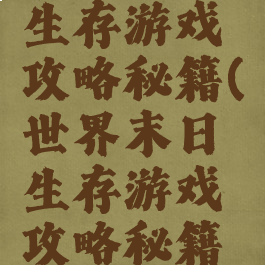 生存游戏
攻略秘籍(
世界末日
生存游戏
攻略秘籍